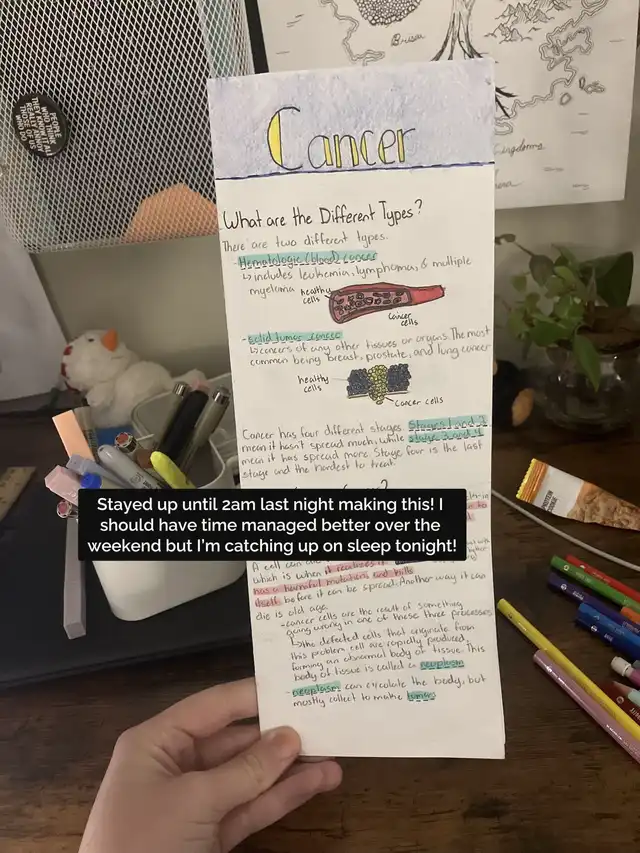 Cancer
What are the Different Types?
There are two different types.
Hematologic (blood) cancer
↳includes leukemia, lymphoma, & multiple
myeloma
healthy
cells
Cancer
cells
-solid tumor cancer
↳cancers of any other tissues or organs. The most
common being breast, prostate, and lung cancer
healthy
cells
Cancer cells
Cancer has four different stages. Stages 1 and 2
mean it hasn't spread much, while stage 3 and 4
mean it has spread more. Stage four is the last
stage and the hardest to treat.
Stayed up until 2am last night making this! I
should have time managed better over the
weekend but I'm catching up on sleep tonight!
A cell can die
which is when it realizes it
has a harmful mutations and kills
itself before it can be spread. Another way it can
die is old age.
-cancer cells are the result of something
going wrong in one of these three processes
↳the defected cells that originate from
this problem cell are rapidly produced,
forming an abnormal body of tissue. This
body of tissue is called a neoplasm
-neoplasm can circolate the body, but
mostly collect to make tumor